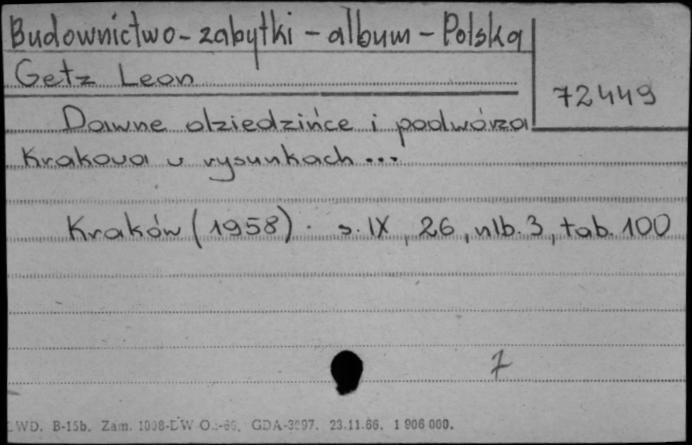 Budownictwo - zabytki - album - Polska
Getz Leon
72449
Dawne dziedzińce i podwórza
Krakowa w rysunkach...
Kraków (1958). s. IX, 26, nlb. 3, tab. 100
7
WD. B-15b. Zam. GDA- 23.11.66. 1 906 000.